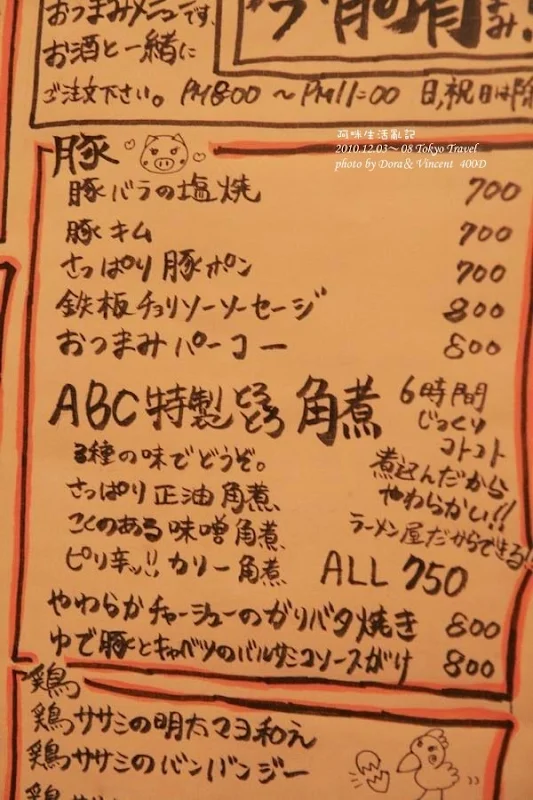 おつまみメニューです。
お酒と一緒に
ご注文下さい。PM8:00 〜 PM11:00 日,祝日は除
阿咪生活亂記
2010.12.03～08 Tokyo Travel
photo by Dora& Vincent 400D
豚
豚バラの塩焼 700
豚キム 700
さっぱり豚ポン 700
鉄板チョリソーソーセージ 800
おつまみパーコー 800
ABC特製とろとろ角煮
6時間
じっくり
コトコト
煮込んだから
やわらかい!!
ラーメン屋だからできる!!
3種の味でどうぞ。
さっぱり正油角煮
こくのある味噌角煮
ピリ辛ッ!!カリー角煮
ALL 750
やわらかチャーシューのガリバタ焼き 800
ゆで豚とキャベツのバルサミコソースがけ 800
鶏
鶏ササミの明太マヨ和え
鶏ササミのバンバンジー